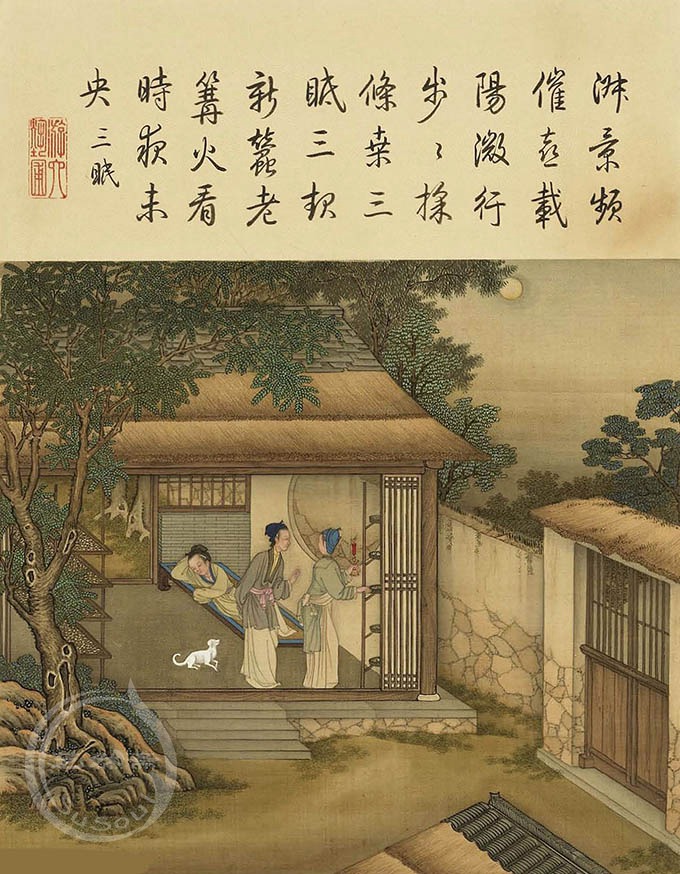 淑景頻
催喜載
陽微行
步〻採
條桑三
眠三起
新蠶老
篝火看
時夜未
央 三眠